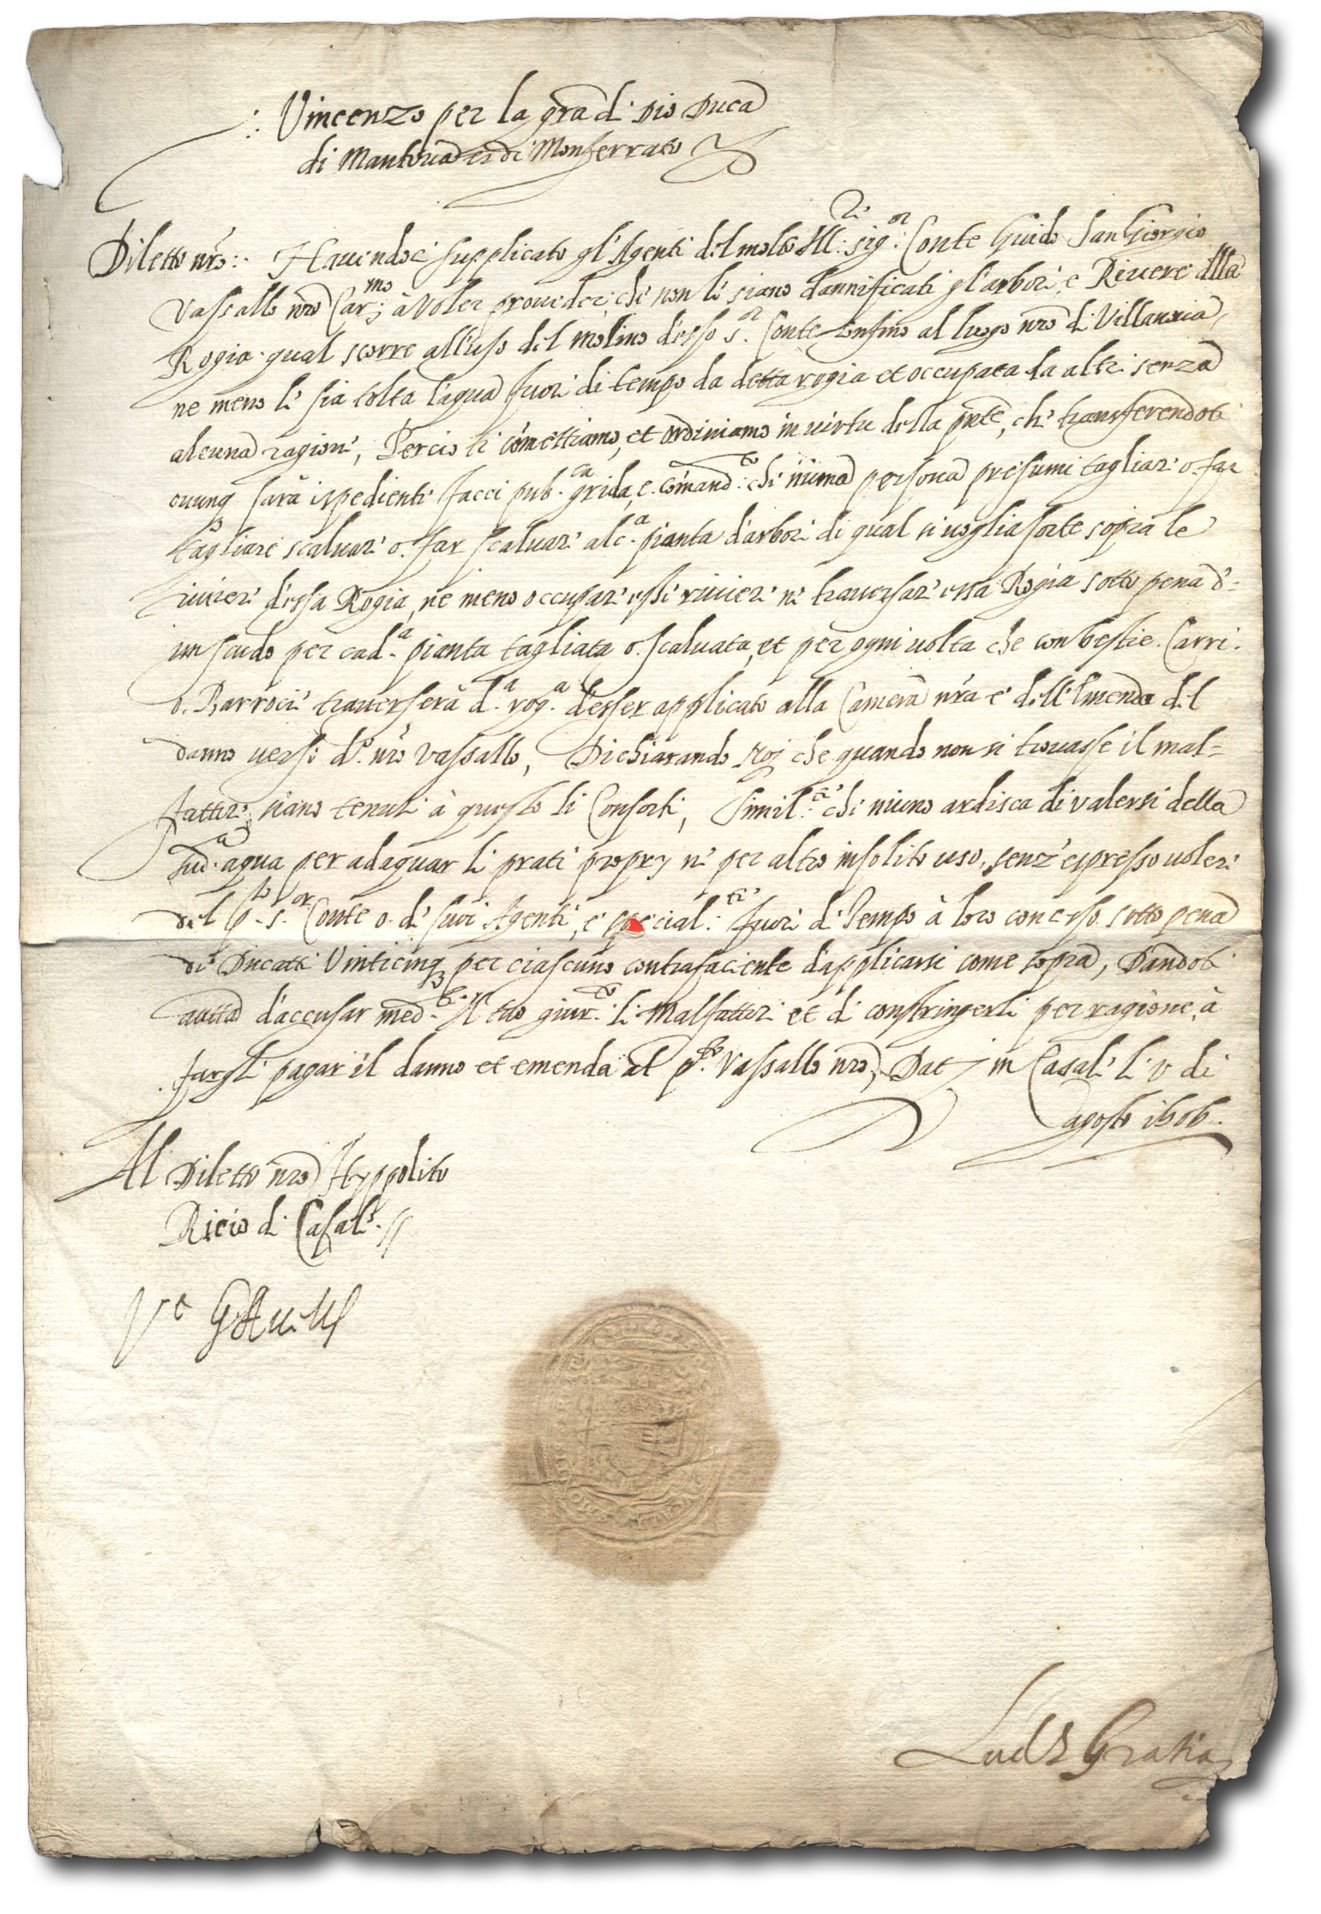 Vincenzo per la gra d'i Dio Duca
di Mantova et di Monferrato
Diletto nro: Havendoci supplicato gl'Agenti del molto Ill.re sig.or Conte Guido San Giorgio
Vassallo nro Car.mo à voler proveder, che non li siano dannificati gl'arbori, e Rivere della
Rogia qual scorre all'uso del molino d'esso s.or Conte insino al luogo nro di Villanova,
ne meno li sia tolta l'aqua fuori di tempo da detta rogia et occupata da altri senza
alcuna ragione, Percio ti comettiamo, et ordiniamo in virtu della pnte, che transferendoti
ovunq sarà ispediente facci pub.ca grida, e comand.to che niuna persona presumi tagliare o far
tagliare scalvare o far scalvare alc.a pianta d'arbori di qual si voglia sorte sopra le
rivieri d'essa Rogia, ne meno occupare essi rivieri ne traversare essa Rogia sotto pena d'
un scudo per cad.a pianta tagliata o scalvata, et per ogni volta che con bestie Carri
o Barrocie traverserà d.a rog.a d'esser applicato alla Camera nra e dell'Emenda del
danno verso d.o nro vassallo, Dichiarando Noi che quando non si trovasse il mal-
fattore, siano tenuti à questo li Consorti, Simil.te che niuno ardisca di valersi della
sud.a aqua per adaquar li prati proprÿ ne per altro insolito uso, senz'espresso volere
del p.to s.or Conte o di suoi Agenti, e special.te fuori di Tempo à loro concesso sotto pena
di Ducatti Vinticinq per ciascuno contrafaciente d'applicarsi come sopra, Dandoti
autta d'accusar med.te il tuo giur.to li Malfattori et di constringerli per ragione, à
fargli pagar il danno et emenda al p.to Vassallo nro, Dat in Casale li v di
agosto 1606.
Al Diletto nro Hyppolito
Ricio di Casale
V.e
Lud.s Gratia